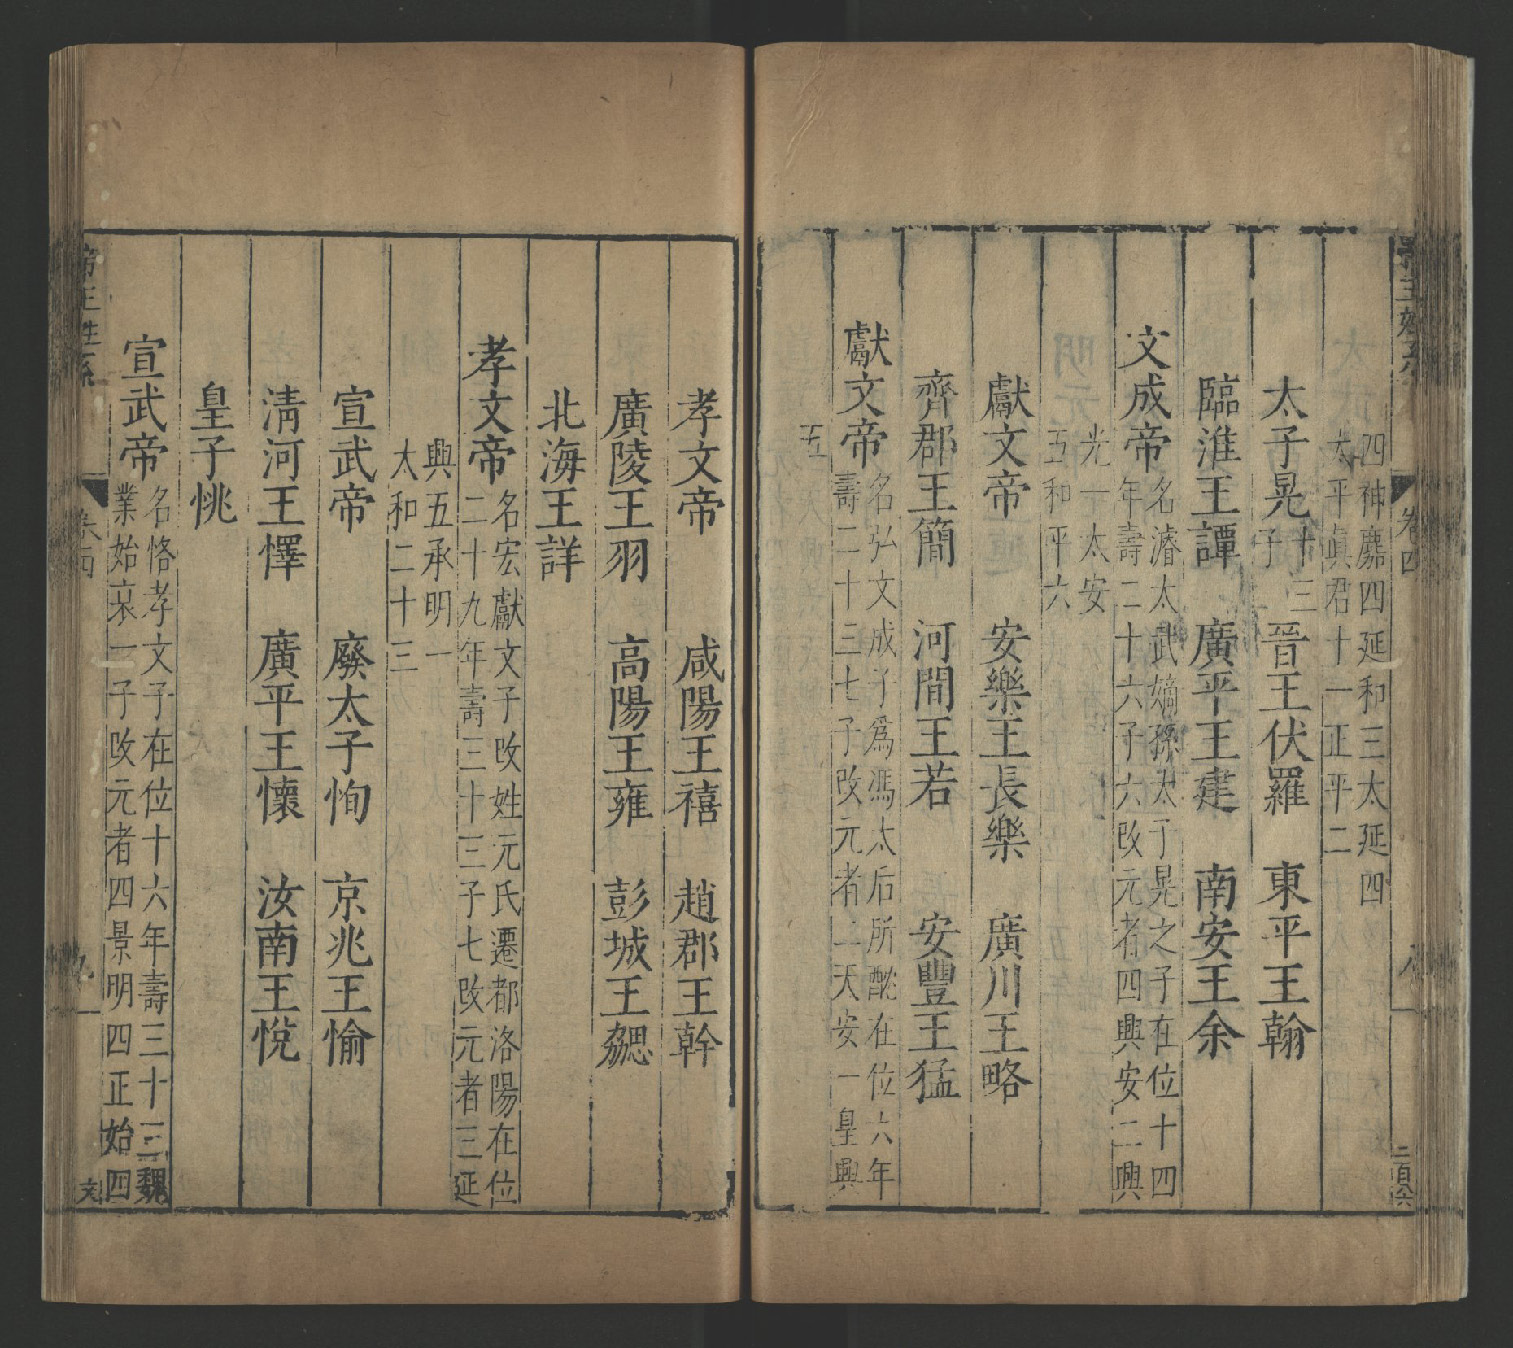 四神䴥四延和三太延四
太平眞君十一正平二
太子晃十三子　晉王伏羅　東平王翰
臨淮王譚　廣平王建　南安王余
文成帝
名濬太武嫡孫太子晃之子在位十四
年壽二十六子六改元者四興安二興
光一太安
五和平六
獻文帝　安樂王長樂　廣川王略
齊郡王簡　河間王若　安豐王猛
獻文帝
名弘文成子爲馮太后所酖在位六年
壽二十三七子改元者二天安一皇興
五
帝王姓系　卷四　八　二百八六
孝文帝　咸陽王禧　趙郡王幹
廣陵王羽　高陽王雍　彭城王勰
北海王詳
孝文帝
名宏獻文子改姓元氏遷都洛陽在位
二十九年壽三十三子七改元者三延
興五承明一
太和二十三
宣武帝　廢太子恂　京兆王愉
清河王懌　廣平王懷　汝南王悅
皇子恌
宣武帝
名恪孝文子在位十六年壽三十三魏
業始衰一子改元者四景明四正始四
帝王姓系　卷四　九　文